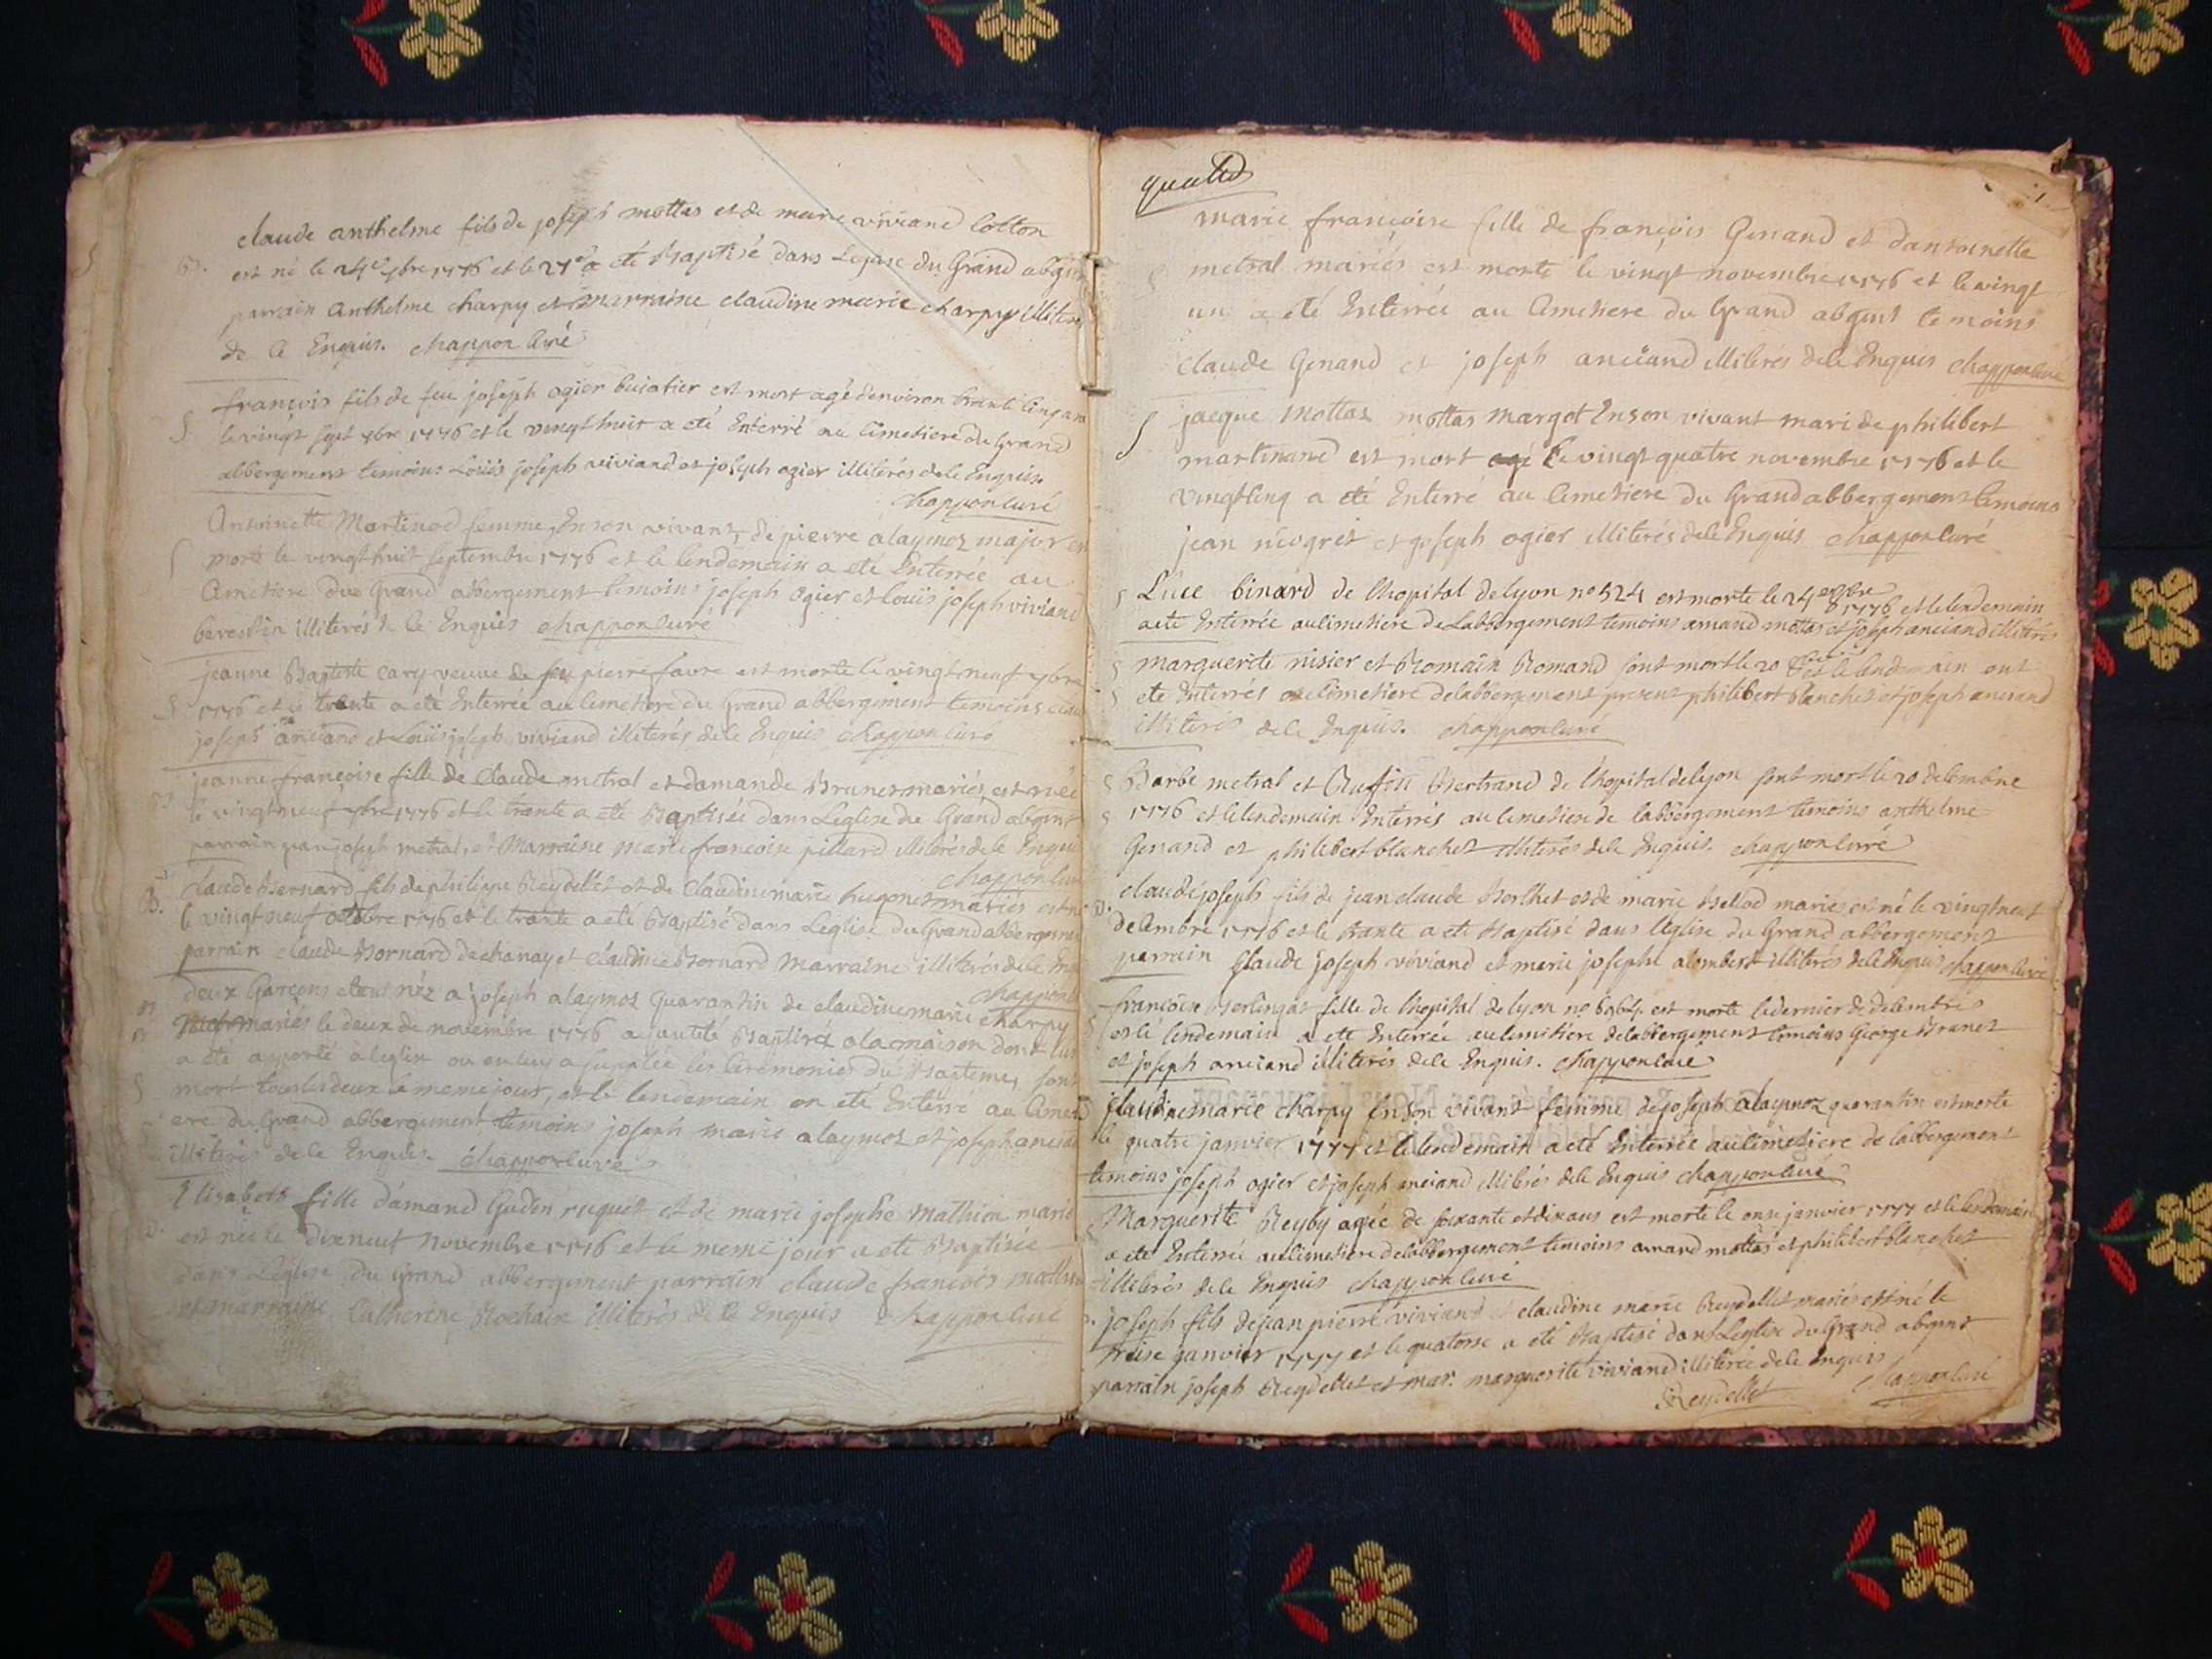 claude anthelme fils de joseph mottas et de marie viviand cotton
B. est né le 24e 7bre 1776 et le 25e a été Baptisé dans Leglise du Grand abgmt
parrain anthelme charpy et marraine claudine marie charpy illiteres
de ce Enquis. chappon curé
françois fils de feu joseph ogier est mort agé denviron trente cinq ans
S le vingt sept 7bre 1776 et le vingt huit a été Enterré au cimetiere du Grand
abbergement temoins Loüis joseph viviand et joseph ogier illiterés de ce Enquis.
chappon curé
Antoinette Martinod femme, En son vivant, de pierre alaymoz major est
S morte le vingt huit septembre 1776 et le lendemain a été Enterrée au
Cimetiere du Grand abbergement temoins joseph Ogier et Louis joseph viviand
illiterés de ce Enquis chappon curé
jeanne Baptiste cary veuve de feu pierre favre est morte le vingt neuf 7bre
S 1776 et le trente a été Enterrée au cimetiere du Grand abbergement temoins
joseph anciand et Loüis joseph viviand illiterés de ce Enquis chappon curé
jeanne françoise fille de Claude metral et damande Brunet mariés, est née
le vingt neuf 7bre 1776 et le trante a été Baptisée dans Leglise du Grand abgmt
parrain joseph metral, et Marraine marie françoise pillard illiterés de ce Enquis
chappon curé
B. Claude Bernard fils de philippe Reydellet et de Claudine marie hugonet mariés est né
le vingt neuf octobre 1776 et le trante a été Baptisé dans Léglise du Grand abbergement
parrain claude Bornard de chanay et claudine Bornard Marraine illiterés de ce Enquis
chappon
deux Garçons etant néz a joseph alaymoz quarantin de claudine marie charpy
mariés le deux de novembre 1776 ayant été Baptisés a la maison dont lun
a été apporté a leglise ou on luy a supplée les ceremonies du Bapteme, sont
S mort tous les deux le meme jour, et le lendemain on été Enterré au Cimeti
ere du Grand abbergement temoins joseph marie alaymoz et joseph anciand
illiterés de ce Enquis. chappon curé
Elisabeth fille damand Guden ruquet et de marie josephe mathieu mariés
est née le dixneuf novembre 1776 et le meme jour a été Baptisée
dans Léglise du grand abbergement parrain claude françois mathieu
et marraine Catherine Rochaix illiterés de ce Enquis chappon curé
quatre
marie françoise fille de françois Genand et dantoinette
S metral mariés est morte le vingt novembre 1776 et le vingt
un a été Enterrée au Cimetiere du Grand abgmt temoins
claude Genand et joseph anciand illiterés de ce Enquis chappon curé
jacque Mottaz mottas margot En son vivant mari de philibert
S martinand est mort agé le vingt quatre novembre 1776 et le
vingt cinq a été Enterré au Cimetiere du Grand abbergement temoins
jean et joseph ogier illiterés de ce Enquis chappon curé
S Luce binard de lhopital de lyon no 524 est morte le 24 1776 et le lendemain
a été Enterrée au cimetiere de Labbergement temoins amand mottas et joseph anciand illiterés
S marguerite nisier et Romain Romand sont mort le 20 et le lendemain ont
S été Enterrés au cimetiere de labbergement present philibert blanchet et joseph anciand
illiterés de ce Enquis. chappon curé
S Barbe metral et Ruffin Bertrand de lhopital de lyon sont mort le 20 decembre
S 1776 et le lendemain Enterrés au cimetiere de labbergement temoins anthelme
Genand et philibert blanchet illiterés de ce Enquis. chappon curé
claude joseph fils de jean claude Borlhet et de marie Bellod mariés est né le vingt neuf
decembre 1776 et le trante a été Baptisé dans leglise du Grand abbergement
parrain Claude joseph viviand et marie josephe alombert illiterés de ce Enquis chappon curé
françoise Berlingat fille de lhopital de lyon no 6964 est morte le dernier de decembre
S et lé lendemain a été Enterrée au cimetiere de labbergement temoins George Brunet
et joseph anciand illiterés de ce Enquis. chappon curé
Claudine marie charpy En son vivant femme de joseph alaymoz quarantin est morte
le quatre janvier 1777 et le lendemain a été Enterrée au cimetiere de labbergement
temoins joseph ogier et joseph anciand illiterés de ce Enquis chappon curé
Marguerite Reyby agée de soixante et dix ans est morte le onze janvier 1777 et le lendemain
a été Enterrée au cimetiere de labbergement temoins amand mottas et philibert blanchet
illiterés de ce Enquis chappon curé
joseph fils de jean pierre viviand et claudine marie Reydellet mariés est né le
treise janvier 1777 et le quatorse a été Baptisé dans Leglise du Grand abgmt
parrain joseph Reydellet et mar. marguerite viviand illiterée de ce Enquis
Reydellet chappon curé